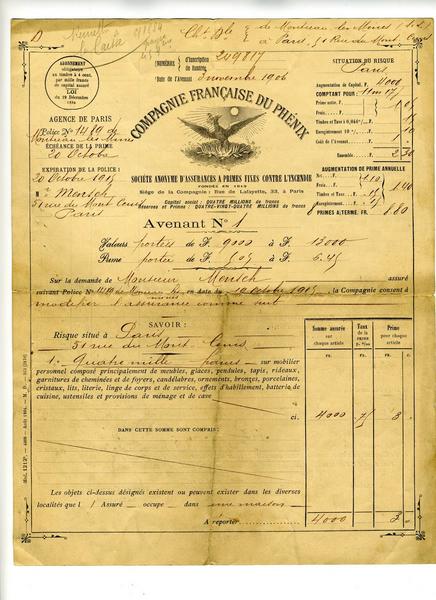 D
de Montceau les Mines
à Paris, 51 Rue du Mont Cenis
ABONNEMENT
obligatoire
au timbre à 4 cent.
par mille francs
de capital assuré
LOI
du 29 Décembre
1884
NUMÉROS d'inscription 249817
de Rentrée
Date de l'Avenant 3 novembre 1906
SITUATION DU RISQUE
Paris
Augmentation de Capital. F. 4000
COMPTANT POUR: 11 m 17 j
Prime nette. F.
Frais
Timbre et Taxes à 0,04%
Enregistrement 10%
Coût de l'Avenant 1
Ensemble 2.30
AUGMENTATION DE PRIME ANNUELLE
Net F.
Frais
Timbre et Taxe F.
Enregistrement F.
PRIMES A TERME. FR. 1.80
COMPAGNIE FRANÇAISE DU PHÉNIX
AGENCE DE PARIS
Police No 1489 de
Montceau les Mines
ÉCHÉANCE DE LA PRIME
20 Octobre
EXPIRATION DE LA POLICE:
20 Octobre 1915
M. Mensch
51 rue du Mont Cenis
Paris
SOCIÉTÉ ANONYME D'ASSURANCES A PRIMES FIXES CONTRE L'INCENDIE
FONDÉE EN 1819
Siège de la Compagnie: Rue de Lafayette, 33, à Paris
Capital social: QUATRE MILLIONS de francs
Réserves et Primes: QUATRE-VINGT-QUATRE MILLIONS de francs
Avenant No 1
Valeurs portées de F. 9000 à F. 13000
Prime portée de F. à F. 6.45
Sur la demande de Monsieur Mensch assuré
suivant Police No 1489 de Montceau en date du 10 Octobre 1905, la Compagnie consent à
modifier l'assurance comme suit
SAVOIR:
Somme assurée
sur
chaque article
Taux
de la
PRIME
Prime
pour
chaque article
FR.
FR. C.
Risque situé à Paris
51 rue du Mont Cenis
1o Quatre mille francs sur mobilier
personnel composé principalement de meubles, glaces, pendules, tapis, rideaux,
garnitures de cheminées et de foyers, candélabres, ornements, bronzes, porcelaines,
cristaux, lits, literie, linge de corps et de service, effets d'habillement, batterie de
cuisine, ustensiles et provisions de ménage et de cave
ci. 4000 3
DANS CETTE SOMME SONT COMPRIS:
Les objets ci-dessus désignés existent ou peuvent exister dans les diverses
localités que l'Assuré occupe dans une maison
A reporter 4000 3